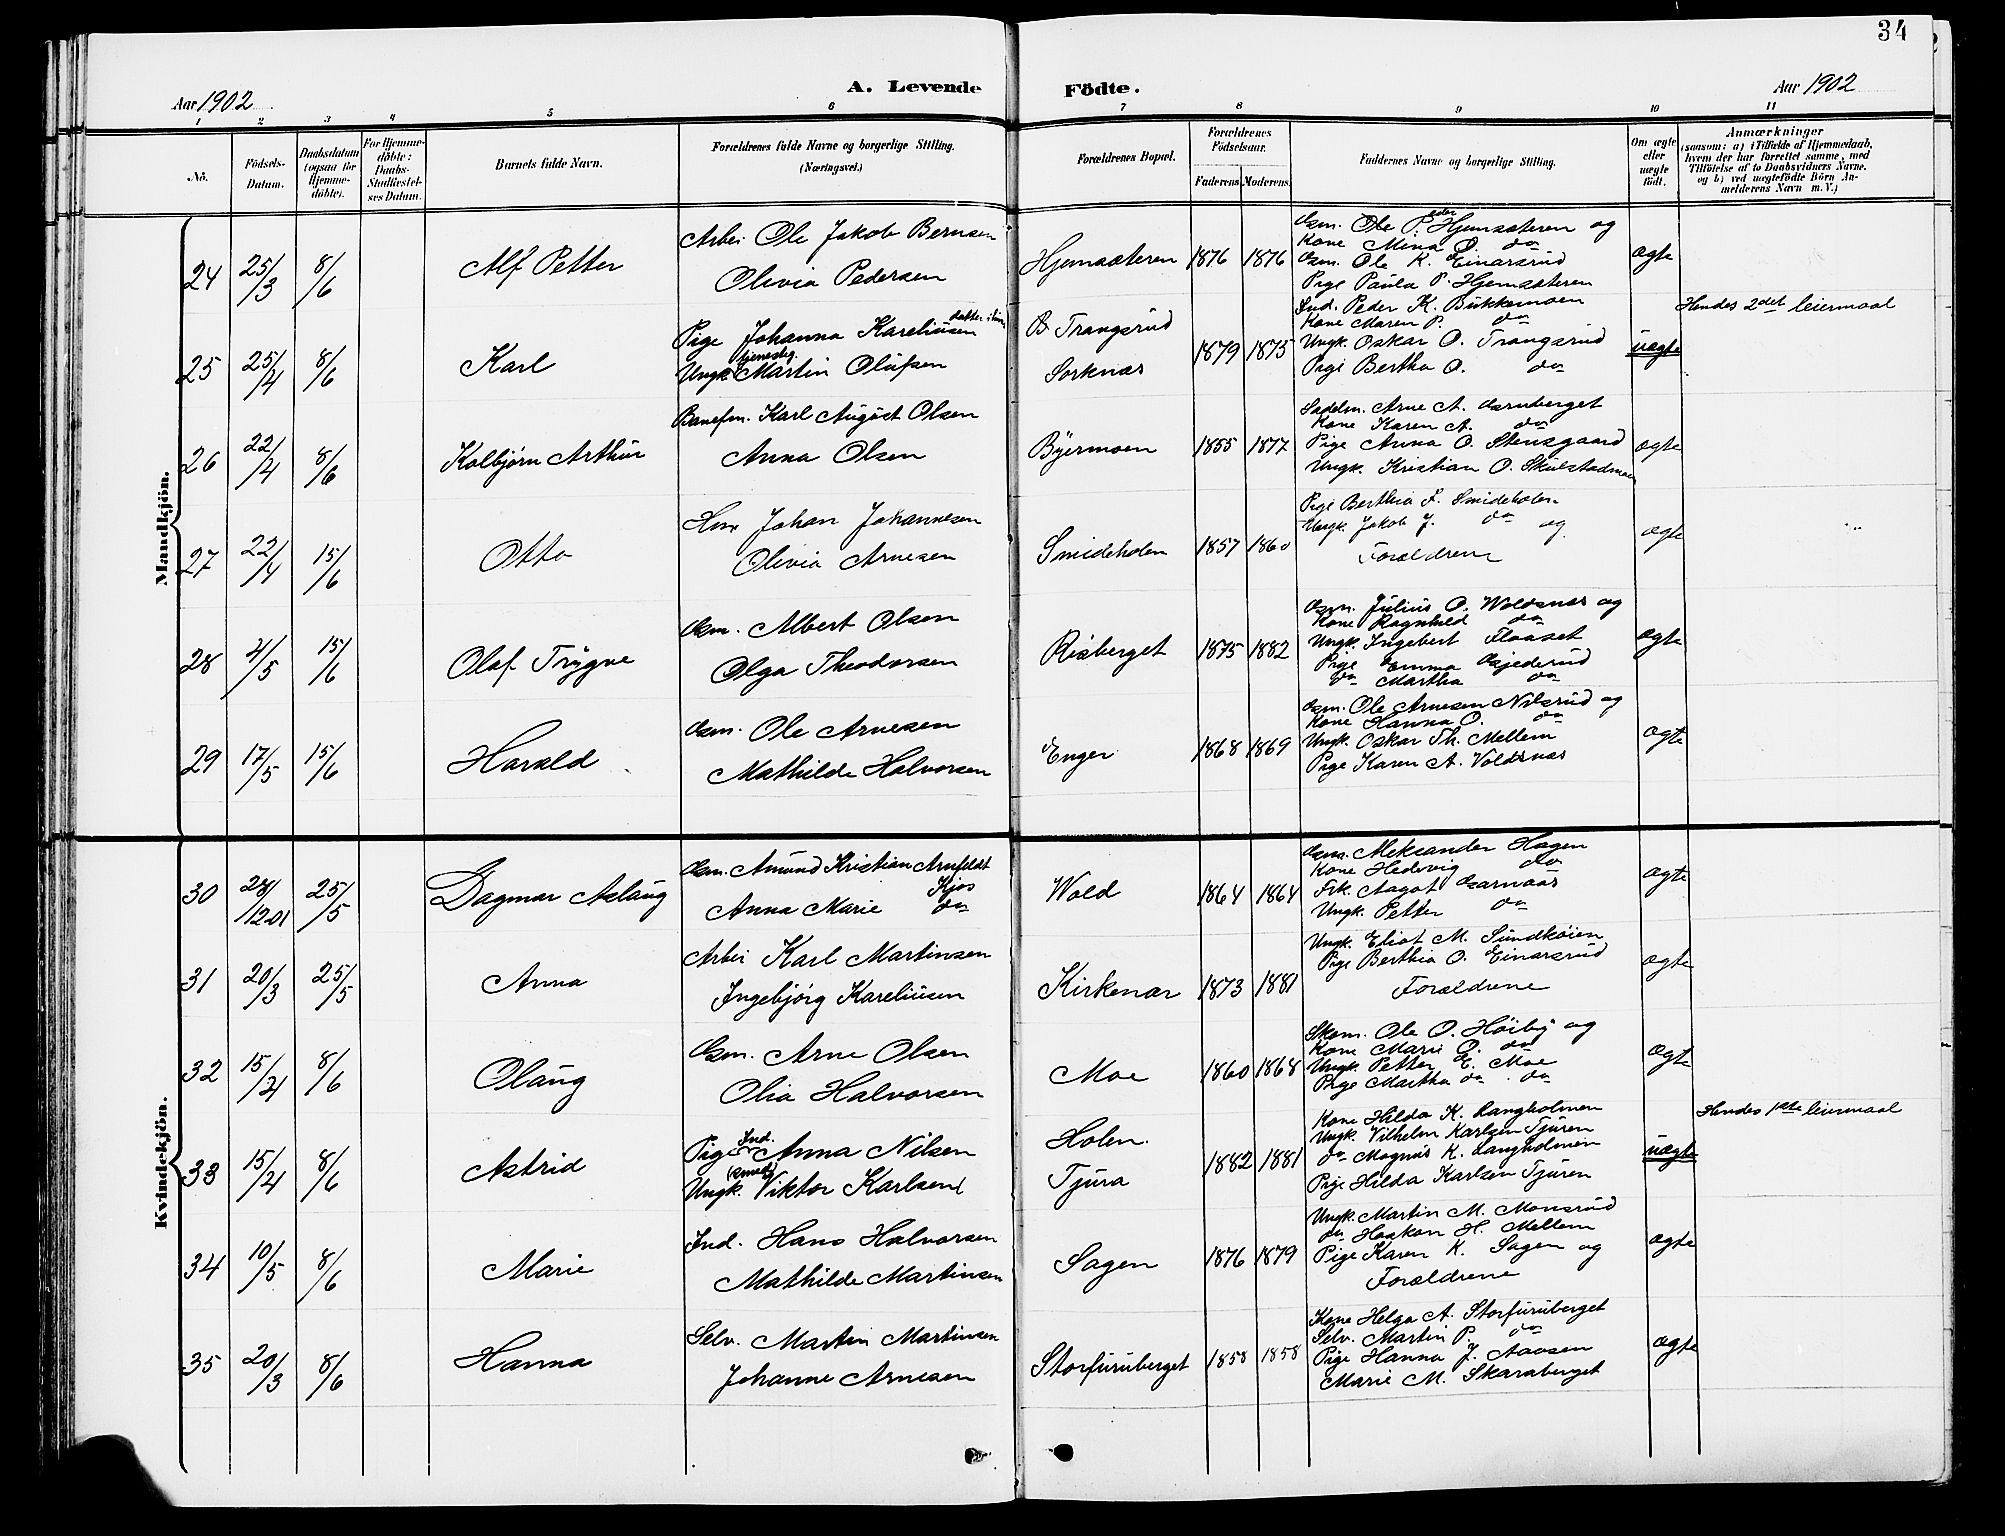 34
Aar 1902
A. Levende Födte.
Aar 1902
1 2 3 4 5 6 7 8 9 10 11
Nö.
Födsels-Datum.
Daabsdatum (ogsaa for Hjemme-döbte).
For Hjemme-döbte: Daabs-Stadfæstel-ses Datum.
Barnets fulde Navn.
Forældrenes fulde Navne og borgerlige Stilling.
(Næringsvei.)
Forældrenes Bopæl.
Forældrenes Födselsaar.
Faderens Moderens
Faddernes Navne og borgerlige Stilling.
Om ægte eller uægte födt.
Anmærkninger
(saasom: a) i Tilfælde af Hjemmedaab,
hvem der har forrettet samme, med
Tilföielse af to Daabsvidners Navne.
og b) ved uægtefödte Börn An-
melderens Navn m. V.)
Mandkjön.
24 25/3 8/6 Alf Petter
Arbei Ole Jakob Bernsen
Olivia Pedersen
Hjemsæteren 1876 1876
Gsm. Ole Peder Hjemsæteren og
Kone Mina O. do
Gsm. Ole K. Einarsrud
Pige Paula P. Hjemsæteren
ægte
25 25/4 8/6 Karl
Pige Johanna Kareliusen
Ungk. Martin Olufsen
B. Trangsrud
Sorknæs
1879 1875
Ind. Peder K. Bukkemoen
Kone Maren P. do
Ungk. Oskar O. Trangsrud
Pige Bertha O. do
uægte
Hendes 2det leiermaal
26 22/4 8/6 Kolbjørn Arthur
Banefm. Karl August Olsen
Anna Olsen
Byermoen 1855 1877
Sadelm. Arne A. Gruberget
Kone Karen A. do
Pige Anna O. Stensgaard
Ungk. Kristian O. Skulstadmoen
ægte
27 22/4 15/6 Otto
Hm Johan Johannesen
Olivia Arnesen
Smideholen 1857 1860
Pige Berthia J. Smideholen
Ungk. Jakob J. do og
Forældrene
ægte
28 4/5 15/6 Olaf Trygve
Gsm. Albert Olsen
Olga Theodorsen
Risberget 1875 1882
Gsm. Julius O. Woldsnæs og
Kone Ragnhild do
Ungk. Ingebert Flaaset
Pige Emma Gjederud
do Martha do
ægte
29 17/5 15/6 Harald
Gsm. Ole Arnesen
Mathilde Halvorsen
Enger 1868 1869
Gsm. Ole Arnesen Nilsrud og
Kone Hanna O. do
Ungk. Oskar Th. Mellem
Pige Karen A. Voldsnæs
ægte
Kvindekjön.
30 28/12 01 25/5 Dagmar Aslaug
Gsm. Amund Kristian Arnfeldt Kjos
Anna Marie do
Wold 1864 1864
Gsm. Aleksander Hagen
Kone Hedevig do
Frk. Aagot Garnaas
Ungk. Petter do
ægte
31 20/3 25/5 Anna
Arbei Karl Martinsen
Ingebjörg Kareliusen
Kirkenær 1873 1881
Ungk. Eliot M. Sundkøien
Pige Berthia O. Einarsrud
Forældrene
ægte
32 15/4 8/6 Olaug
Gsm. Arne Olsen
Olia Halvorsen
Moe 1860 1868
Skom. Ole O. Höiby og
Kone Marie O. do
Ungk. Petter E. Moe
Pige Martha do do
ægte
33 15/4 8/6 Astrid
Pige Ind. Anna Nilsen
Ungk. (smed) Viktor Karlsen
Holen
Tjura
1882 1881
Kone Hilda K. Langholmen
Ungk. Vilhelm Karlsen Tjuren
do Magnus K. Langholmen
Pige Hilda Karlsen Tjuren
uægte
Hendes 1ste leiermaal
34 10/5 8/6 Marie
Ind. Hans Halvorsen
Mathilde Martinsen
Sagen 1876 1879
Ungk. Martin M. Monsrud
do Haakon H. Mellem
Pige Karen K. Sagen og
Forældrene
ægte
35 20/3 8/6 Hanna
Selv. Martin Martinsen
Johanne Arnesen
Storfuruberget 1858 1858
Kone Helga A. Storfuruberget
Selv. Martin P. do
Pige Hanna J. Aaosen
Marie M. Skaraberget
ægte